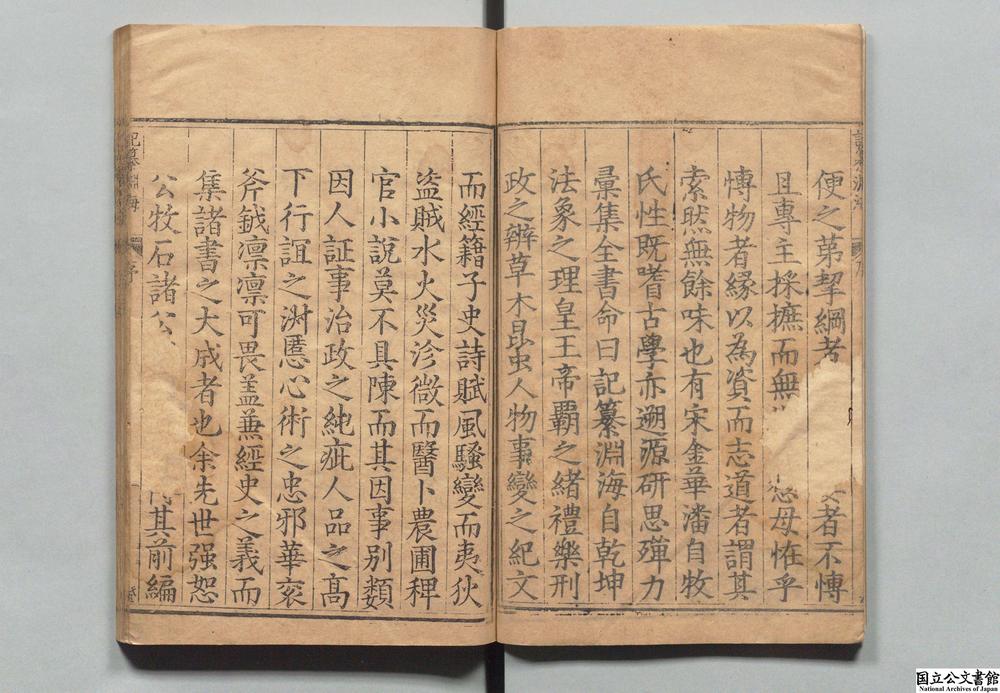 便之第挈綱者
者不愽
且專主採摭而無
懲毋恠乎
愽物者緣以為資而志道者謂其
索然無餘味也有宋金華潘自牧
氏性既嗜古學亦遡源研思殫力
彙集全書命曰記纂淵海自乾坤
法象之理皇王帝覇之緒禮樂刑
政之辨草木昆虫人物事變之紀文
而經籍子史詩賦風騷變而夷狄
盜賊水火災沴微而醫卜農圃稗
官小說莫不具陳而其因事别類
因人証事治政之純疵人品之髙
下行誼之淑慝心術之忠邪華衮
斧鉞凛凛可畏盖兼經史之義而
集諸書之大成者也余先世强恕
公牧石諸公
其前編
記纂淵海
序
国立公文書館
National Archives of Japan